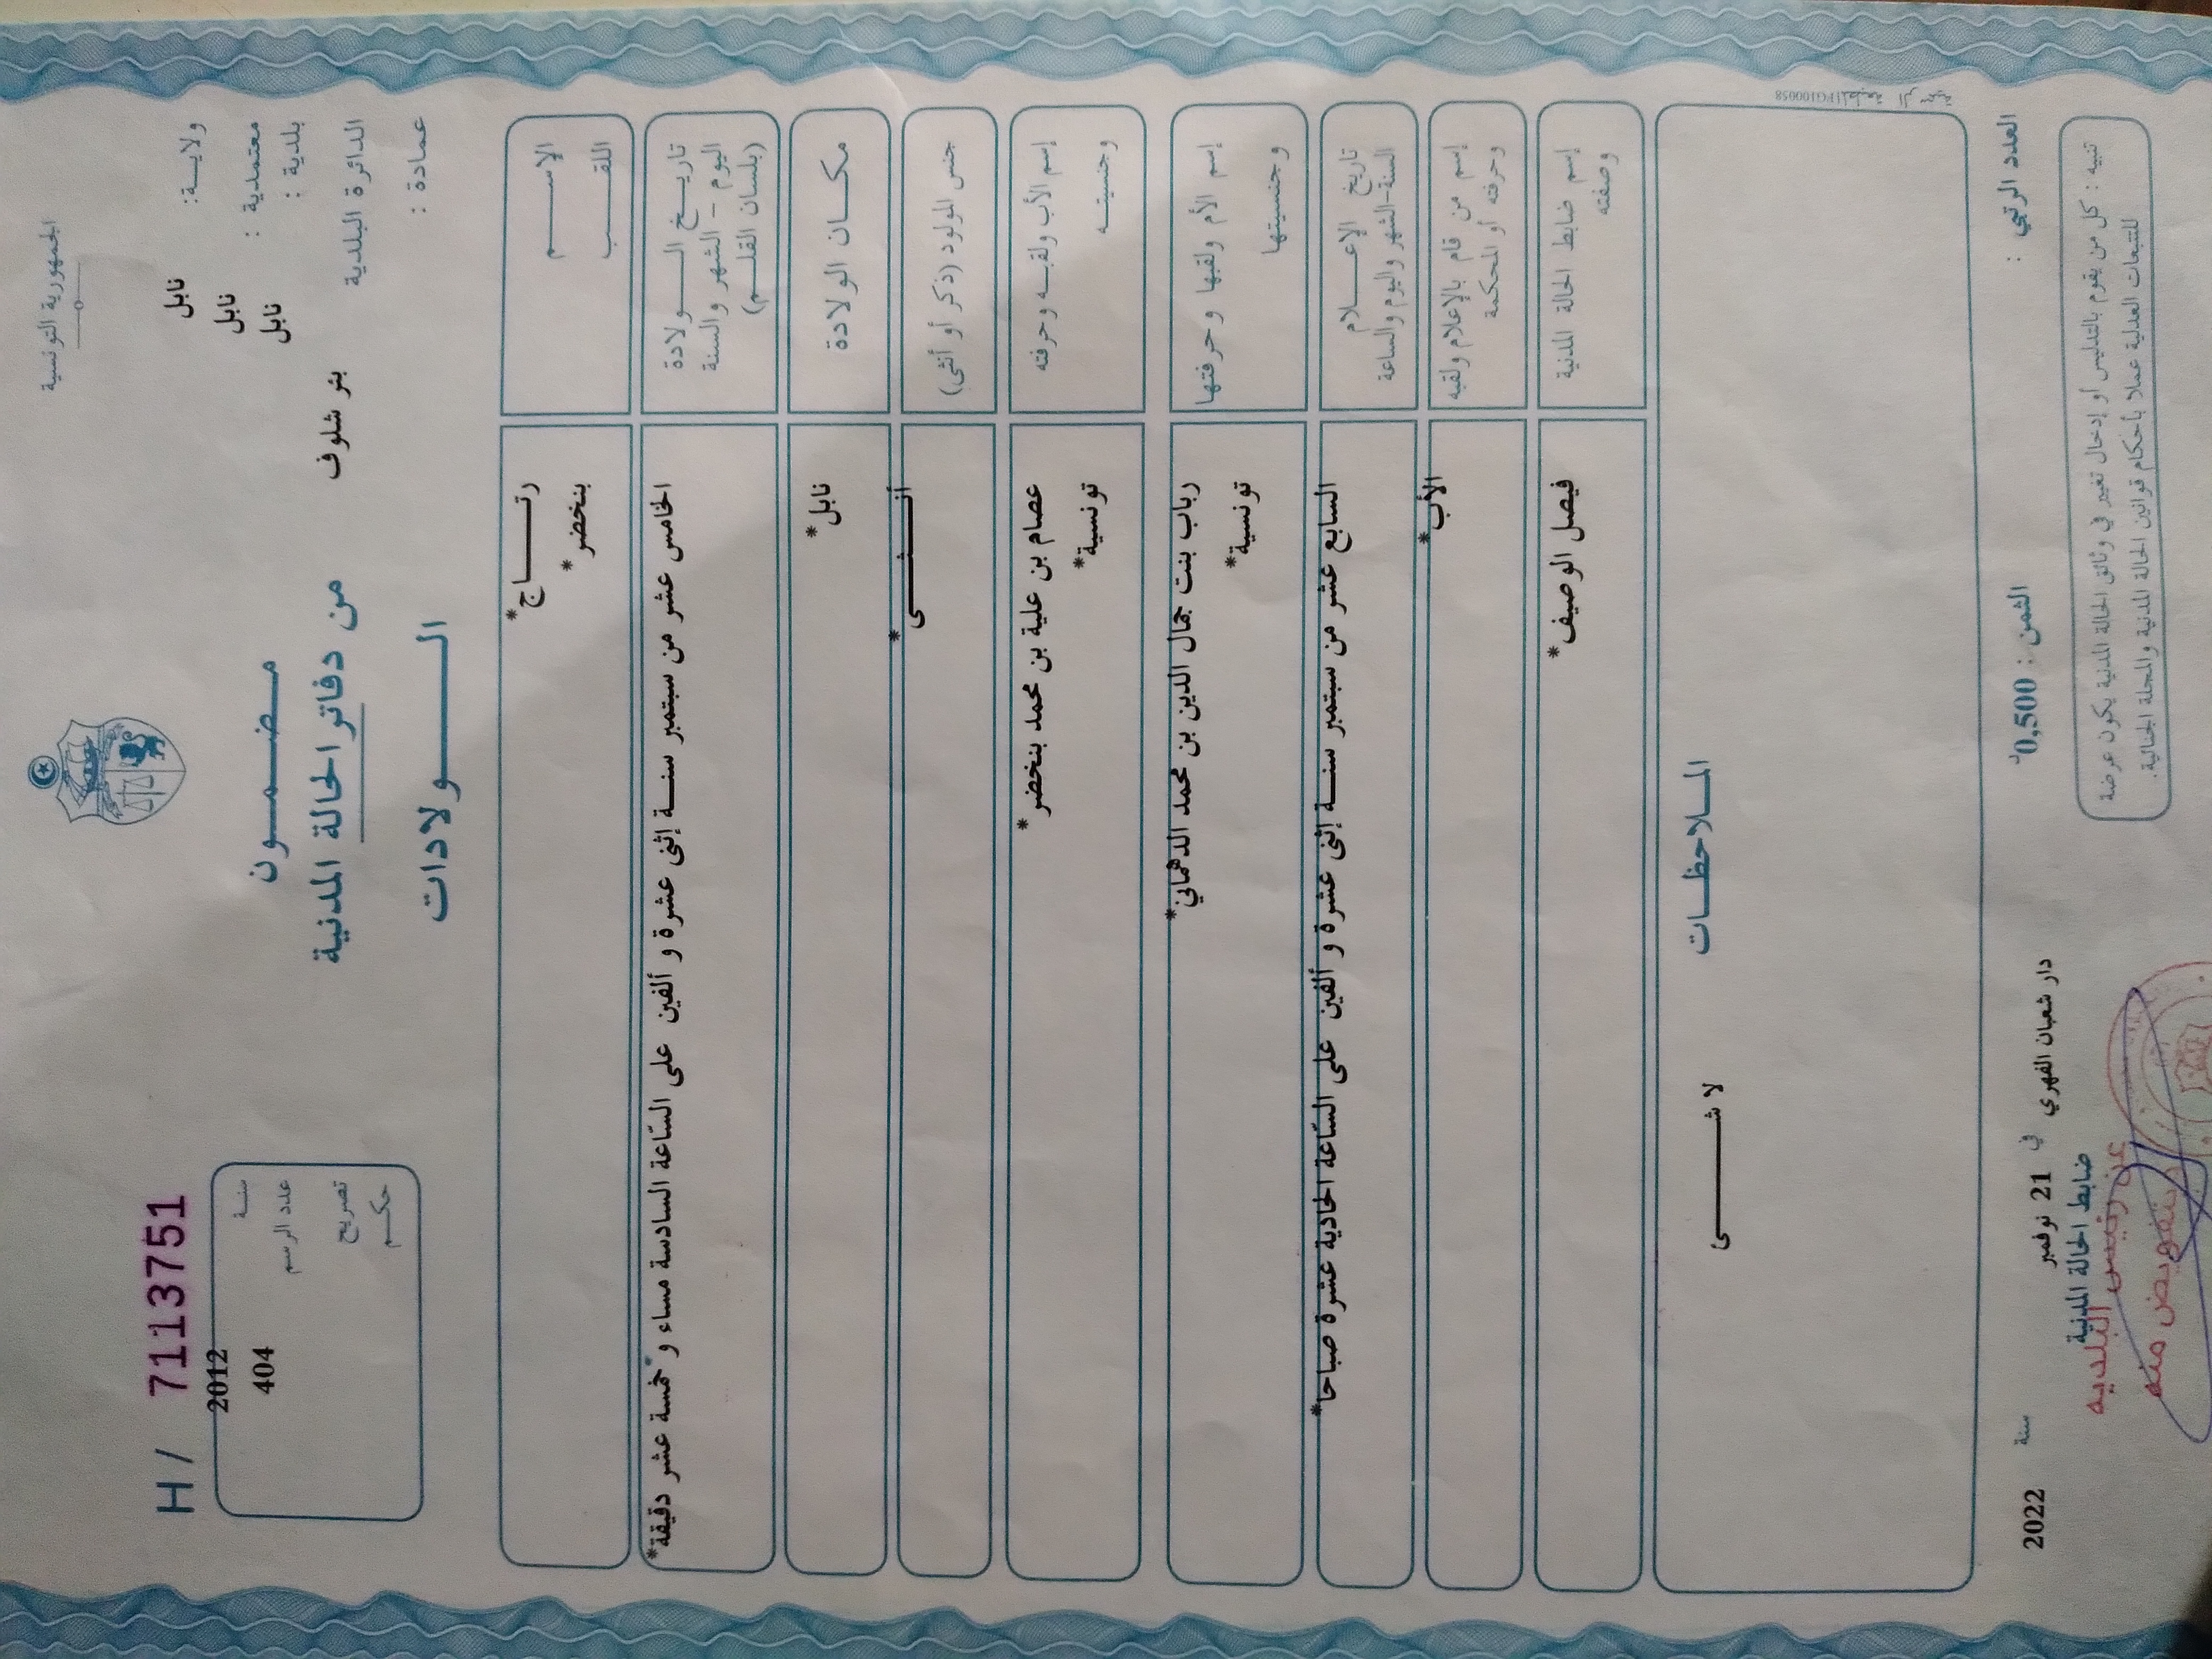 الجمهورية التونسية
H / 7113751
ولايـــة: نابل
معتمدية : نابل
بلدية : نابل
الدائرة البلدية بئر شلوف
عمادة :
مـضـمـون
من دفاتر الحالة المدنية
الـــولادات
سنـة 2012
عدد الرسم 404
تصريح
حكـم
الإســـم
اللقـــب
رتـــاج*
بنخضر*
تاريـــخ الـــولادة
اليوم - الشهر والسنة
(بلسان القلـــم)
الخامس عشر من سبتمبر سنـــة إثنى عشرة و ألفين على السّاعة السادسة مساء و خمسة عشر دقيقة*
مكـــان الولادة
نابل*
جنس المولود (ذكر أو أنثى)
أنـــثـــى*
إسم الأب ولقبـــه وحرفته
وجنسيتـــه
عصام بن علية بن محمد بنخضر*
تونسية*
إسم الأم ولقبها وحرفتها
وجنسيتها
رباب بنت جمال الدين بن محمد الدهماني*
تونسية*
تاريخ الإعـــلام
السنة-الشهر واليوم والساعة
السابع عشر من سبتمبر سنـــة إثنى عشرة و ألفين على السّاعة الحادية عشرة صباحا*
إسم من قام بالإعلام ولقبه
وحرفته أو المحكمة
الأب*
إسم ضابط الحالة المدنية
وصفته
فيصل الوصيف*
المـــلاحظـــات
لا شـــــى
المطبعة الرسمية PG100058
العدد الرتبي :
الثمن : 0,500د
دار شعبان الفهري في 21 نوفمبر سنة 2022
ضابط الحالة المدنية
عن رئيس البلديه
بتفويض منه
تنبيه : كل من يقوم بالتدليس أو إدخال تغيير في وثائق الحالة المدنية يكون عرضة
للتتبعات العدلية عملا بأحكام قوانين الحالة المدنية والمجلة الجنائية.